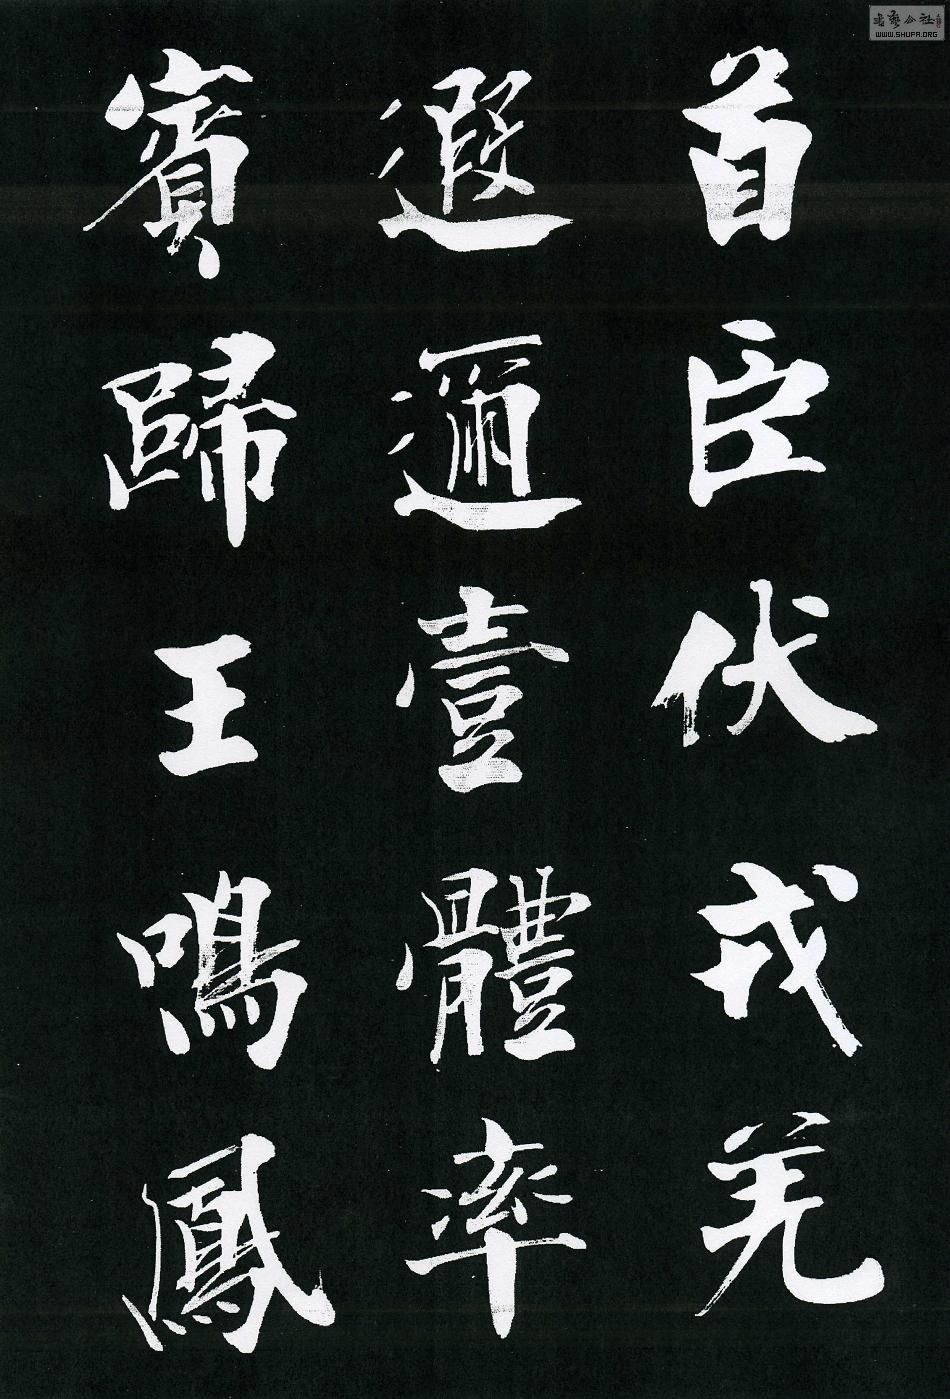 首臣伏戎羌
遐邇壹體率
賓歸王鳴鳳
書藝公社
WWW.SHUFA.ORG